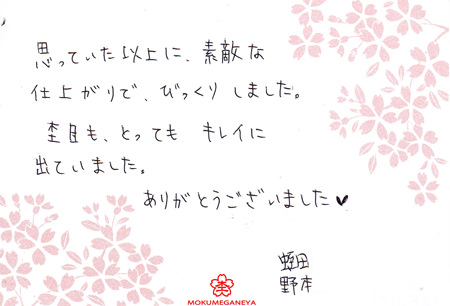 思っていた以上に、素敵な
仕上がりで、びっくりしました。
杢目も、とっても キレイに
出ていました。
ありがとうございました♥
蛭田
野本
杢
MOKUMEGANEYA